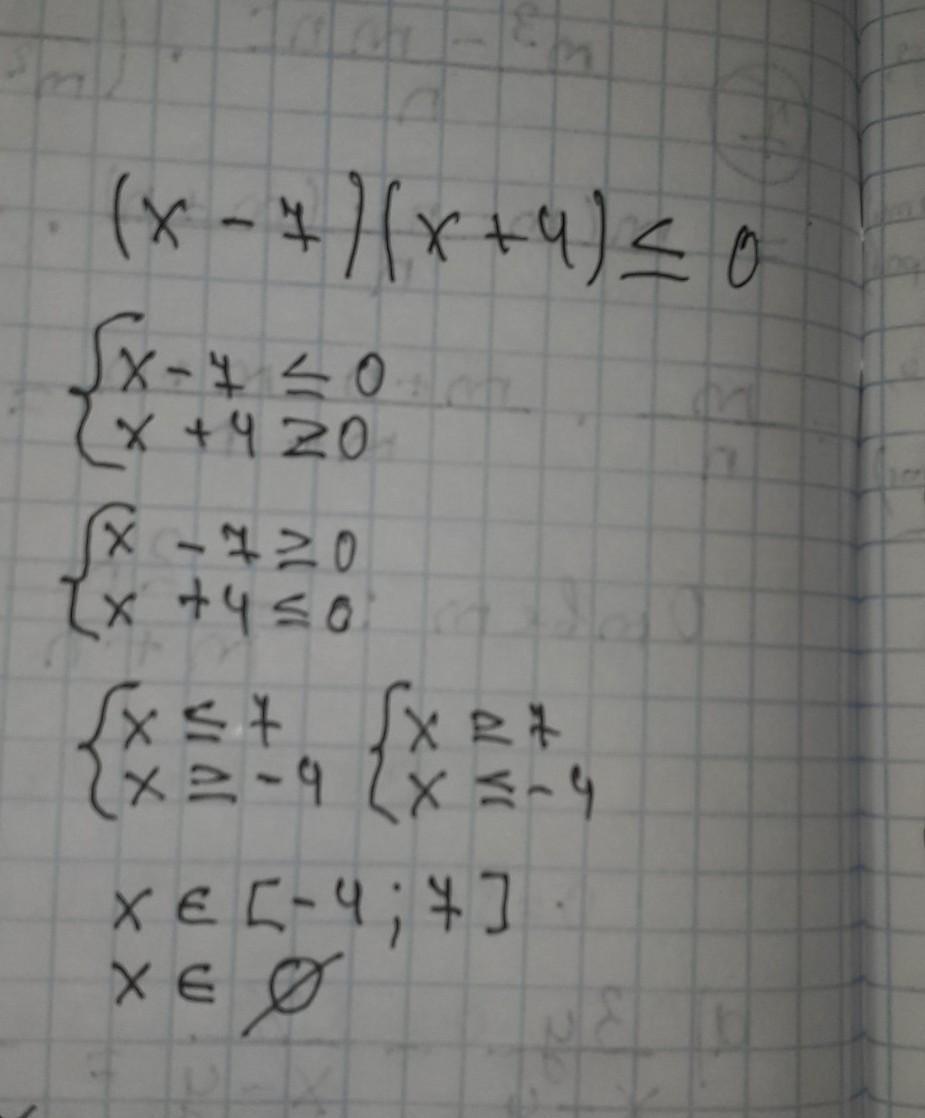 (x - 7)(x + 4) ≤ 0
{ x - 7 ≤ 0
x + 4 ≥ 0
{ x - 7 ≥ 0
x + 4 ≤ 0
{ x ≤ 7 { x ≥ 7
x ≥ -4 x ≤ -4
x ∈ [-4; 7]
x ∈ ∅